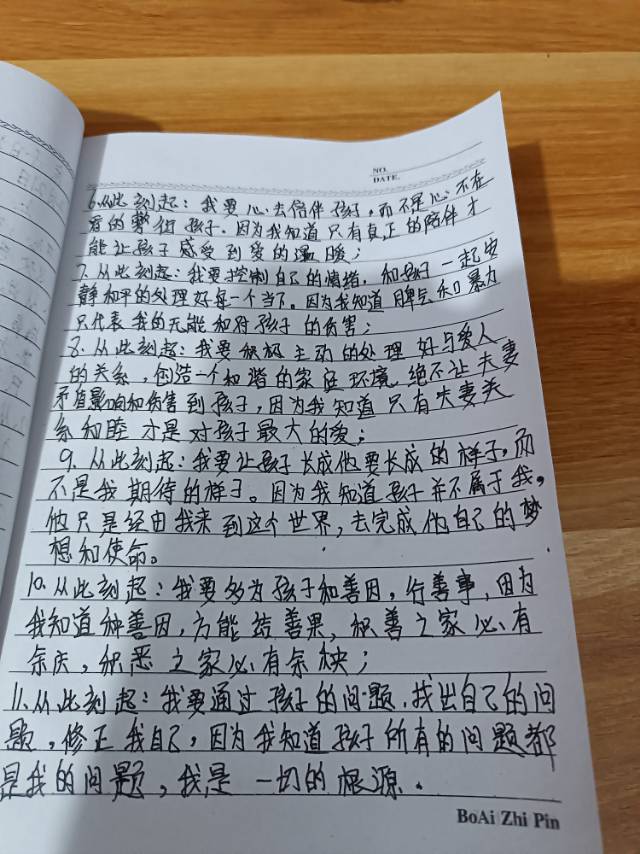 NO.
DATE.
6.从此刻起：我要心去陪伴孩子，而不是心不在
焉的敷衍孩子。因为我知道只有真正的陪伴才
能让孩子感受到爱的温暖；
7.从此刻起：我要控制自己的情绪，和孩子一起安
静和平的处理好每一个当下。因为我知道脾气和暴力
只代表我的无能和对孩子的伤害；
8.从此刻起：我要积极主动的处理好与爱人
的关系，创造一个和谐的家庭环境，绝不让夫妻
矛盾影响和伤害到孩子，因为我知道只有夫妻关
系和睦才是对孩子最大的爱；
9.从此刻起：我要让孩子长成他要长成的样子，而
不是我期待的样子。因为我知道孩子并不属于我，
他只是经由我来到这个世界，去完成他自己的梦
想和使命。
10.从此刻起：我要多为孩子和善因，行善事，因为
我知道种善因，方能结善果，积善之家必有
余庆，积恶之家必有余殃；
11.从此刻起：我要通过孩子的问题，找出自己的问
题，修正我自己，因为我知道孩子所有的问题都
是我的问题，我是一切的根源。
BoAi Zhi Pin